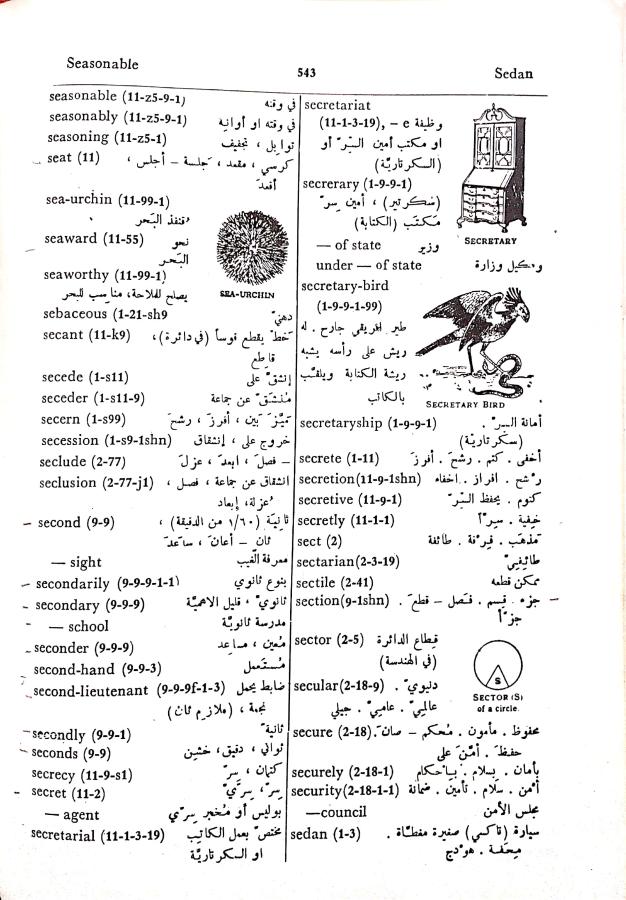 Seasonable
543
Sedan
seasonable (11-z5-9-1) في وقته
seasonably (11-z5-9-1) في وقته او أوانه
seasoning (11-z5-1) توابل ، تجفيف
seat (11) كرسي ، مقعد ، جلسة – أجلس ،
أقعد
sea-urchin (11-99-1)
قنفذ البحر
seaward (11-55) نحو
البحر
SEA-URCHIN
seaworthy (11-99-1)
يصلح للملاحة، مناسب للبحر
sebaceous (1-21-sh9 دهني
secant (11-k9) خط يقطع قوساً (في دائرة)،
قاطع
secede (1-s11) إنشق على
seceder (1-s11-9) منشق عن جماعة
secern (1-s99) تميّز بين ، أفرز ، رشح
secession (1-s9-1shn) خروج على ، إنشقاق
seclude (2-77) – فصل ، ابعد ، عزل
seclusion (2-77-j1) انشقاق عن جماعة ، فصل ،
عزلة، إبعاد
– second (9-9) ثانية (١/٦٠ من الدقيقة) ،
ثان – أعان ، ساعد
— sight معرفة الغيب
– secondarily (9-9-9-1-1) بنوع ثانوي
– secondary (9-9-9) ثانوي ، قليل الاهمية
— school مدرسة ثانوية
seconder (9-9-9) مُعين ، مساعد
second-hand (9-9-3) مُستعمل
second-lieutenant (9-9-9f-1-3) ضابط يحمل
نجمة ، (ملازم ثان)
secondly (9-9-1) ثانية
seconds (9-9) ثواني ، دقيق ، خشين
secrecy (11-9-s1) كتمان ، سر
– secret (11-2) سر، سري
— agent بوليس أو مُخبر سري
secretarial (11-1-3-19) مختص بعمل الكاتب
او السكرتارية
secretariat
(11-1-3-19), – e وظيفة
او مكتب أمين السر أو
(السكرتارية)
secrerary (1-9-9-1)
(سكرتير) ، أمين سر
مكتب (الكتابة)
SECRETARY
— of state وزير
under — of state وكيل وزارة
secretary-bird
(1-9-9-1-99)
طير افريقي جارح . له
ريش على رأسه يشبه
ريشة الكتابة ويلقب
بالكاتب
SECRETARY BIRD
secretaryship (1-9-9-1) أمانة السر .
(سكرتارية)
secrete (1-11) أخفى . كتم . رشح . أفرز
secretion(11-9-1shn) رشح . افراز . اخفاء
secretive (11-9-1) كتوم . يحفظ السر
secretly (11-1-1) خفية . سراً
sect (2) مذهب . فرقة . طائفة
sectarian(2-3-19) طائفي
sectile (2-41) ممكن قطعه
section(9-1shn) جزء . قسم . فصل – قطع . –
جزأ
sector (2-5) قطاع الدائرة
(في الهندسة)
S
SECTOR (S)
of a circle.
secular(2-18-9) دنيوي .
عالمي . عامي . جيلي
secure (2-18) محفوظ . مأمون . مُحكم – صان .
حفظ . أمّن على
securely (2-18-1) بأمان . بسلام . بإحكام
security(2-18-1-1) أمن . سلام . تأمين . ضمانة
—council مجلس الأمن
sedan (1-3) سيارة (تاكسي) صغيرة مغطاة .
محفة . هودج